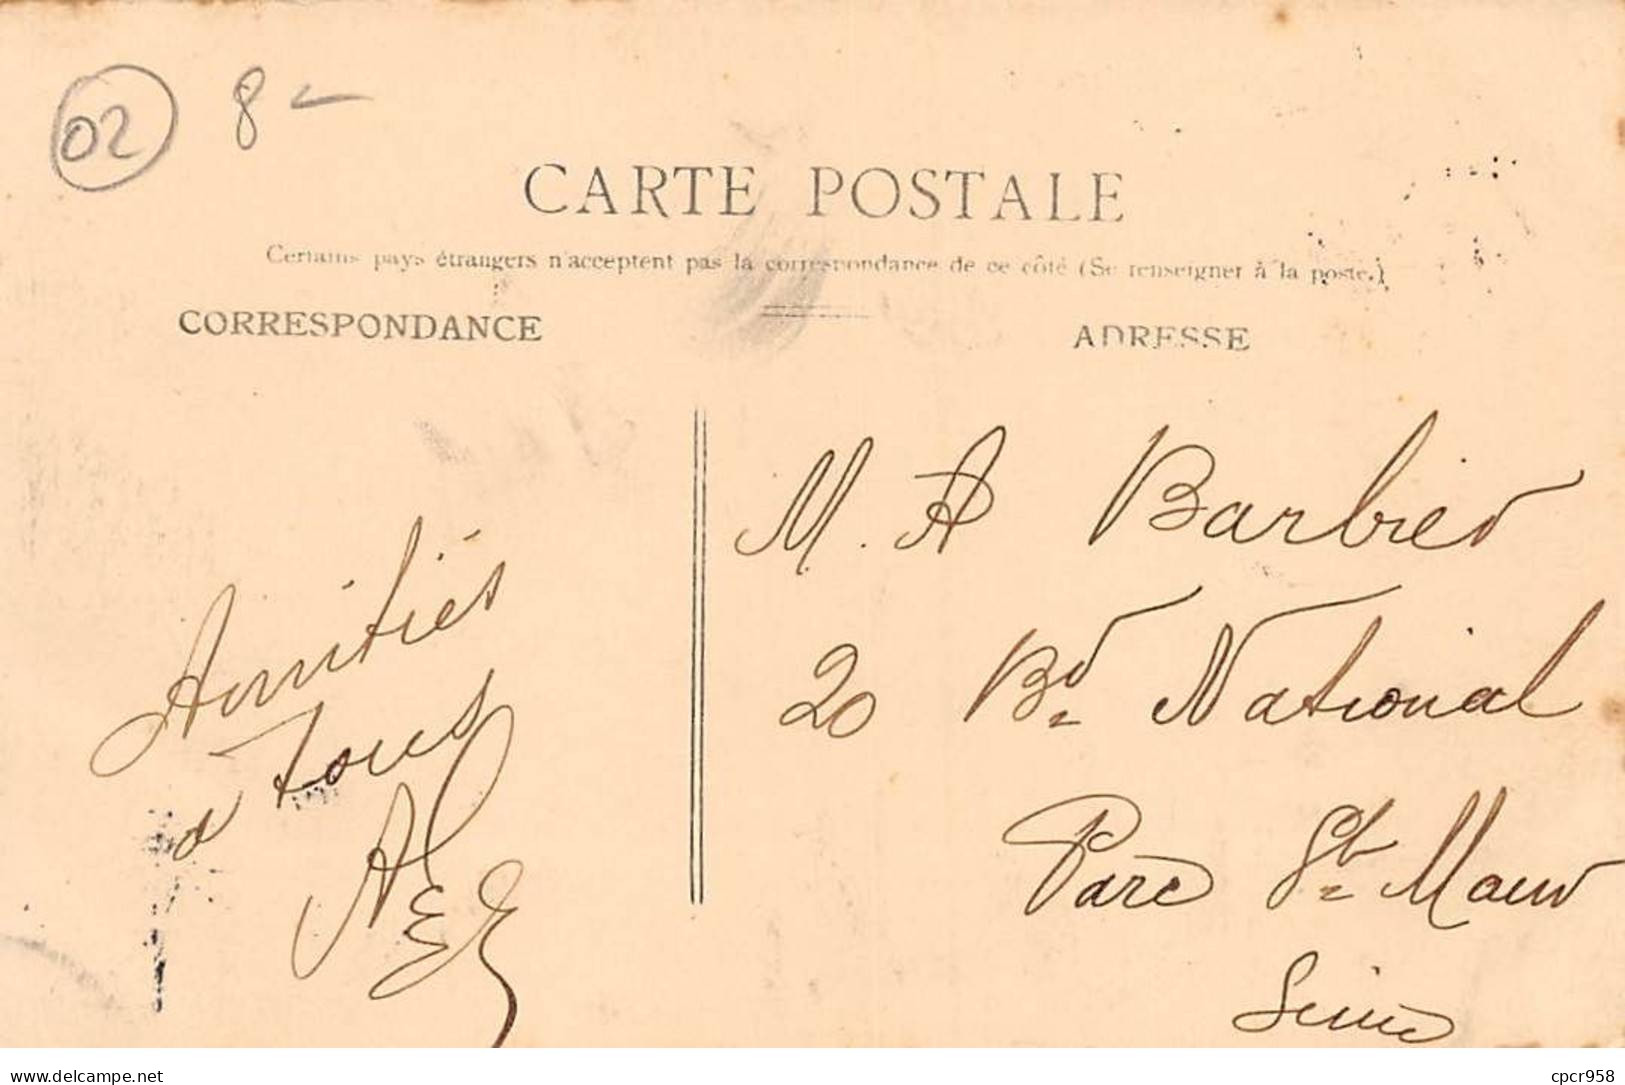 02 8 -
CARTE POSTALE
Certains pays étrangers n'acceptent pas la correspondance de ce côté (Se renseigner à la poste.)
CORRESPONDANCE
ADRESSE
Amitiés
a tous
M. A Barbier
20 Bd National
Parc St Maur
Seine
delcampe.net
cpcr958